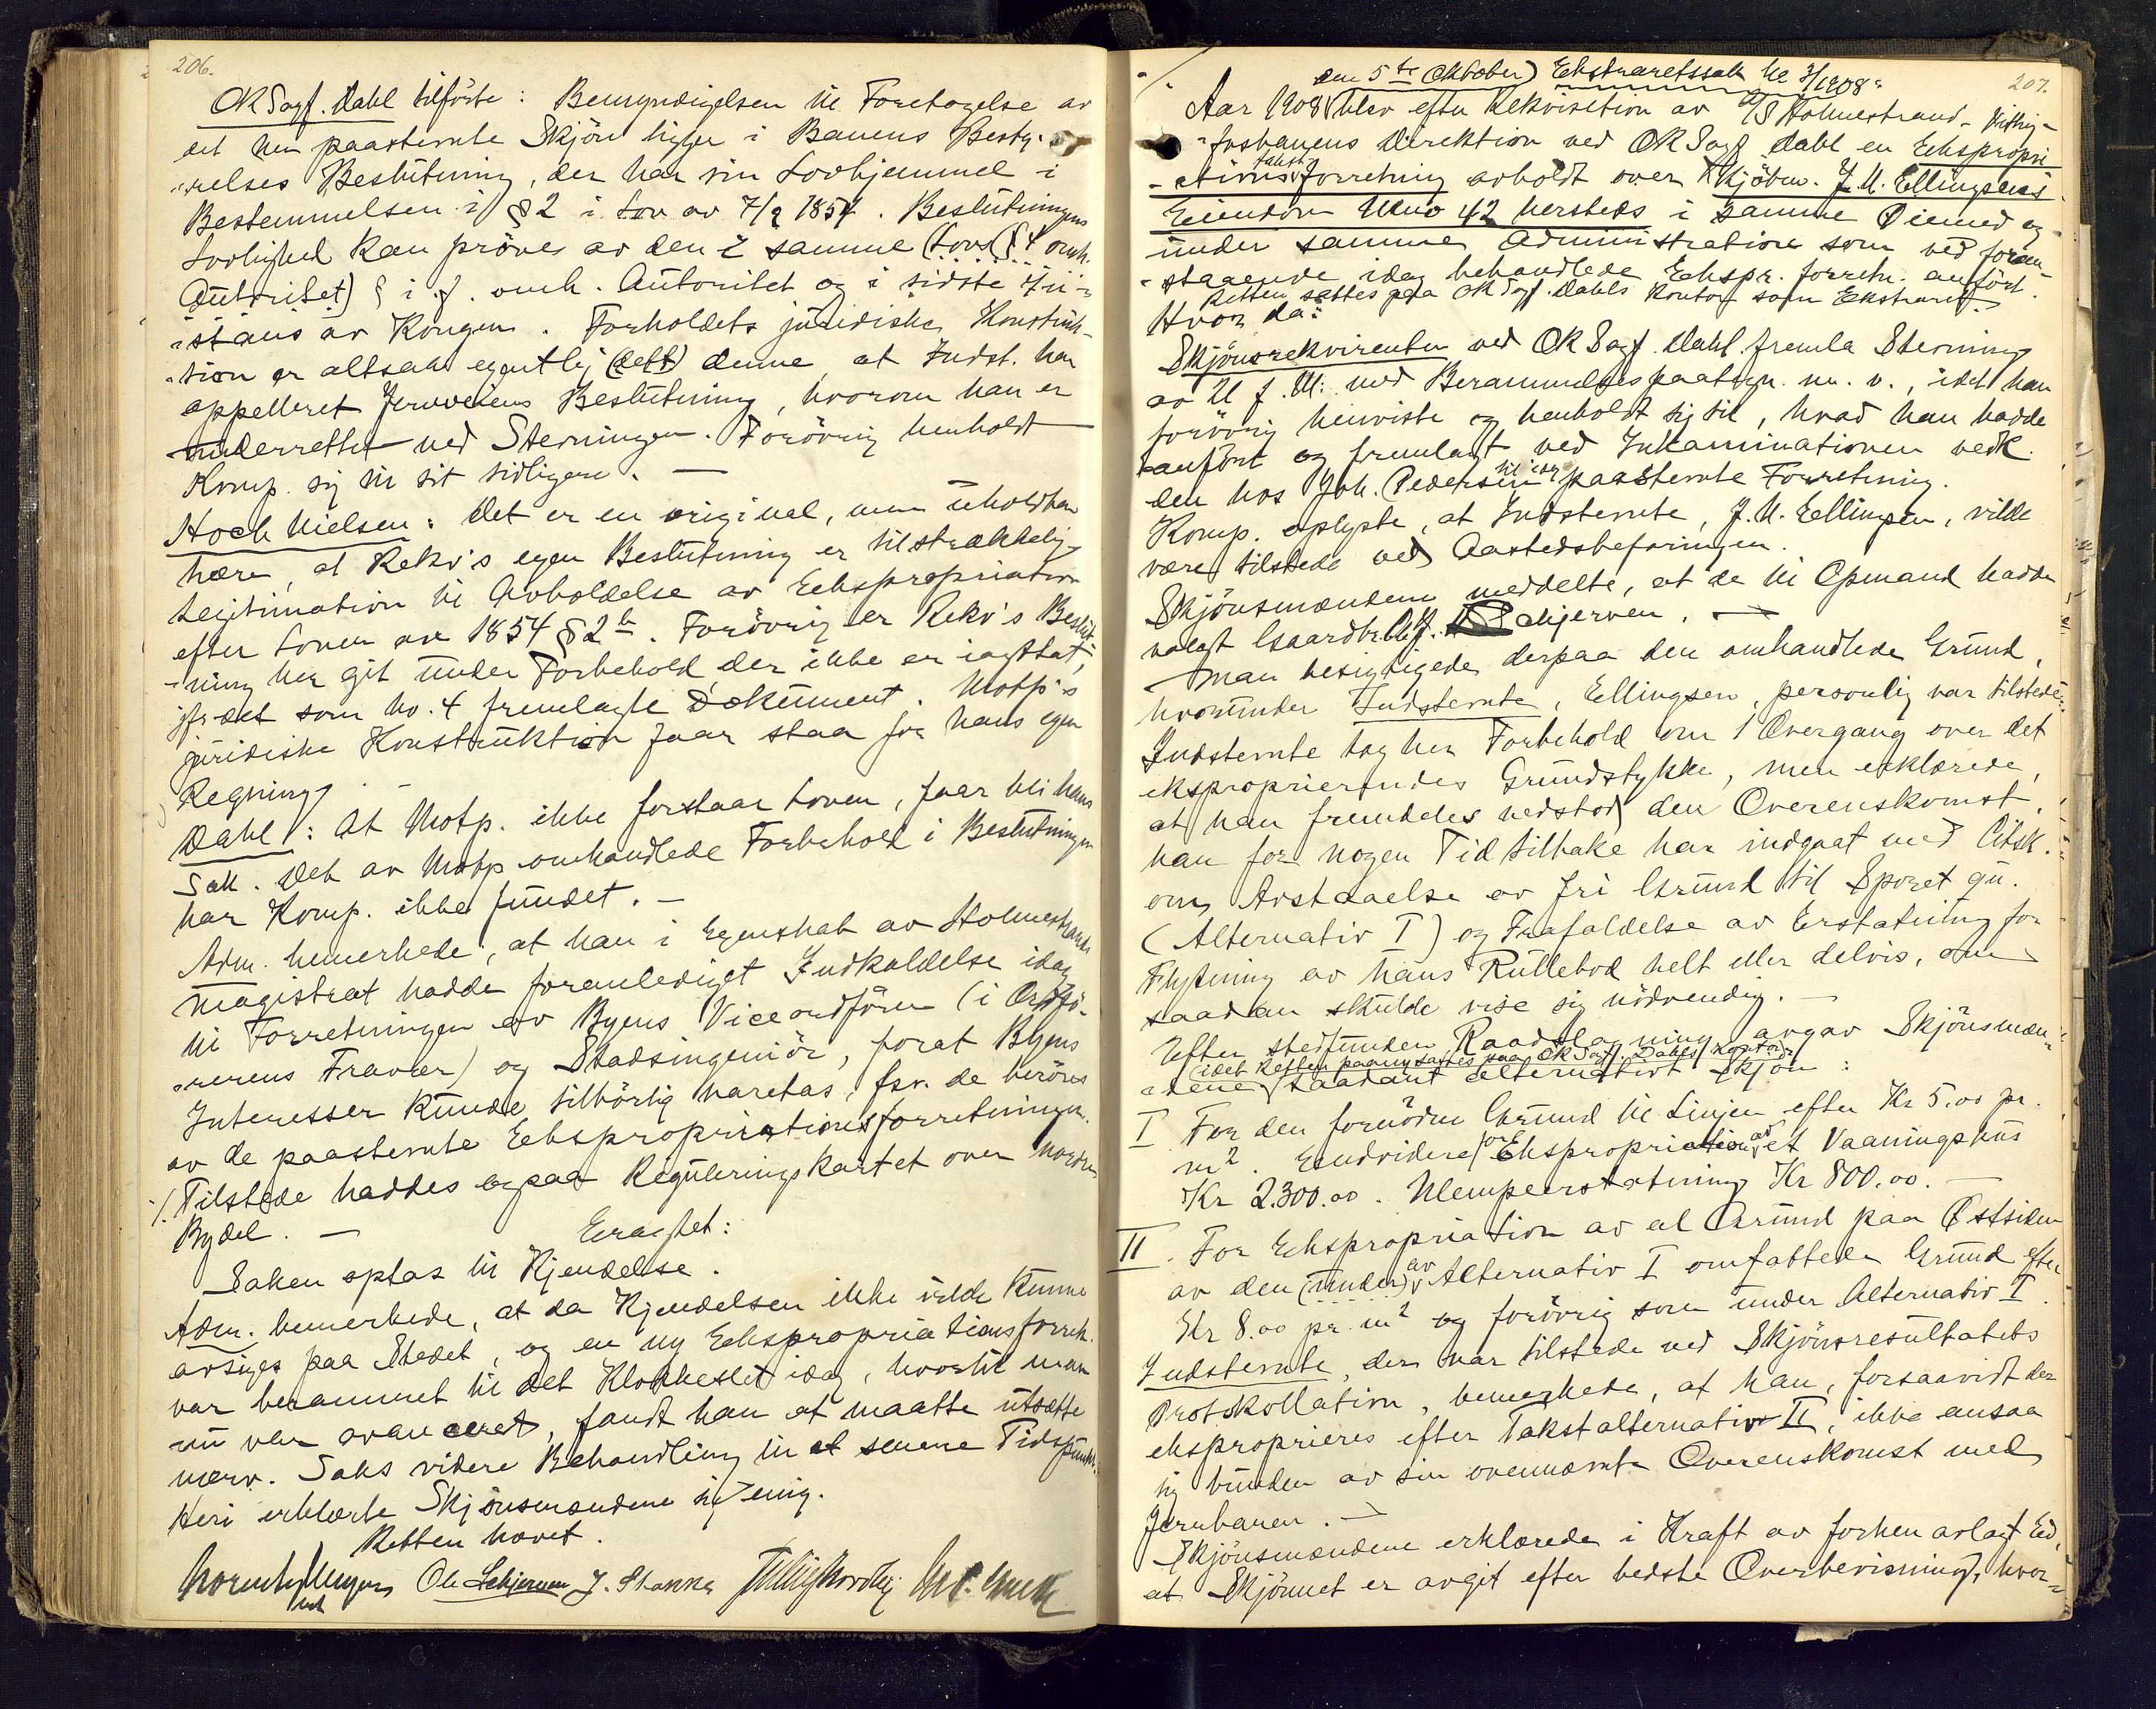 206.
OKSagf. Dahl tilförte: Bemyndigelsen til Foretagelse av
det her paastevnte Skjön ligger i Banens Besty-
relses Beslutning, der har sin Lovhjemmel i
Bestemmelsen i § 2 i Lov av 7/9 1854. Beslutningens
Lovlighed kan pröves av den i samme (Lovs § 4 omh.
Autoritet) § i. f. omh. Autoritet og i sidste In-
stans av Kongen. Forholdets juridiske Konstruk-
tion er altsaa egentlig (dett) denne, at Indst. har
appelleret Jernveiens Beslutning, hvorom han er
underrettet ved Stevningen. Forövrig henholdt
Komp. sig til sit tidligere. —
Hoch Nielsen: Det er en original, men uholdbar
Lære, at Rekv's egen Beslutning er tilstrækkelig
Legitimation til Avholdelse av Ekspropriation
efter Loven av 1854 § 2. Forövrig er Rekv's Beslut-
ning her git under Forbehold, der ikke er iagttat,
jfr det som No. 4 fremlagte Dokument. Motp's
juridiske Konstruktion faar staa for hans egen
Regning. —
Dahl: At Motp. ikke forstaar Loven, faar bli hans
Sak. Det av Motp omhandlede Forbehold i Beslutningen
har Komp. ikke fundet. —
Adm. bemerkede, at han i Egenskab av Holmestrands
Magistrat hadde foranlediget Indkaldelse idag
til Forretningen av Byens Viceordförer (i Ordfö-
rerens Fravær) og Stadsingeniör, forat Byens
Interesser kunde tilbörlig varetas, fsv. de beröres
av de paastevnte Ekspropriationsforretninger.
./. Tilstede haddes ogsaa Reguleringskartet over nordre
Bydel. —
Eragtet:
Saken optas til Kjendelse.
Adm. bemerkede, at da Kjendelsen ikke vilde kunne
avsiges paa Stedet, og en ny Ekspropriationsforretn.
var berammet til det Klokkeslet idag, hvortil man
nu var avanceret, fandt han at maatte utsætte
nærv. Saks videre Behandling til et senere Tidspunkt.
Heri erklærte Skjönsmændene sig enig.
Retten hævet.
Ole Schjerven
207.
den 5te Oktober) Ekstraretssak No 3/1908.
Aar 1908 blev efter Rekvisition av A/S Holmestrand-Vitting-
fosbanens Direktion ved OKSagf Dahl en Ekspropri-
takst
ationsforretning avholdt over Kjöbm. J. M. Ellingsens
Eiendom Mno 42 hersteds i samme Öiemed og
under samme Administration som ved foran-
staaende idag behandlede Ekspr. forretn. anfört.
Retten sattes paa OKSagf. Dahls Kontor som Ekstraret.
Hvor da:
Skjönsrekvirenten ved OKSagf. Dahl fremla Stevning
av M. f. M. med Berammelsespaategn. m. v., idet han
forövrig henviste og henholdt sig til, hvad han hadde
anfört og fremlagt ved Inkaminationen vedk.
til idag
den hos Joh. Pedersen paastevnte Forretning.
Komp. oplyste, at Indstevnte, J. M. Ellingsen, vilde
være tilstede ved Aastedsbefaringen.
Skjönsmændene meddelte, at de til Opmand hadde
valgt Gaardbr. Schjerven. —
Man besigtigede derpaa den omhandlede Grund,
hvorunder Indstevnte, Ellingsen, personlig var tilstede.
Indstevnte tog her Forbehold om 1 Overgang over det
eksproprierendes Grundstykke, men erklærede,
at han fremdeles vedstod den Overenskomst,
han for nogen Tid tilbake har indgaat med Citsk.
om Avstaaelse av fri Grund til Sporet gn.
(Alternativ I) og Frafaldelse av Erstatning for
Flytning av hans Rullebod helt eller delvis, om
saadan skulde vise sig nödvendig. —
Efter stedfunden Raadslagning avgav Skjönsmæn-
(idet Retten paany sattes paa OKSagf. Dahls Kontor)
dene saadant alternativt Skjön:
I For den fornödne Grund til Linjen efter Kr 5.00 pr.
m². Endvidere for Ekspropriation av et Vaaningshus
Kr 2.300.00. Ulempeerstatning Kr 800.00. —
II. For Ekspropriation av al Grund paa Östsiden
av den (under) av Alternativ I omfattede Grund efter
Kr 8.00 pr. m² og forövrig som under Alternativ I.
Indstevnte, der var tilstede ved Skjönsresultatets
Protokollation, bemerkede, at han, forsaavidt der
eksproprieres efter Takstalternativ II, ikke ansaa
sig bunden av sin ovennævnte Overenskomst med
Jernbanen. —
Skjönsmændene erklærede i Kraft av forhen avlagt Ed,
at Skjönnet er avgit efter bedste Overbevisning, hvor-